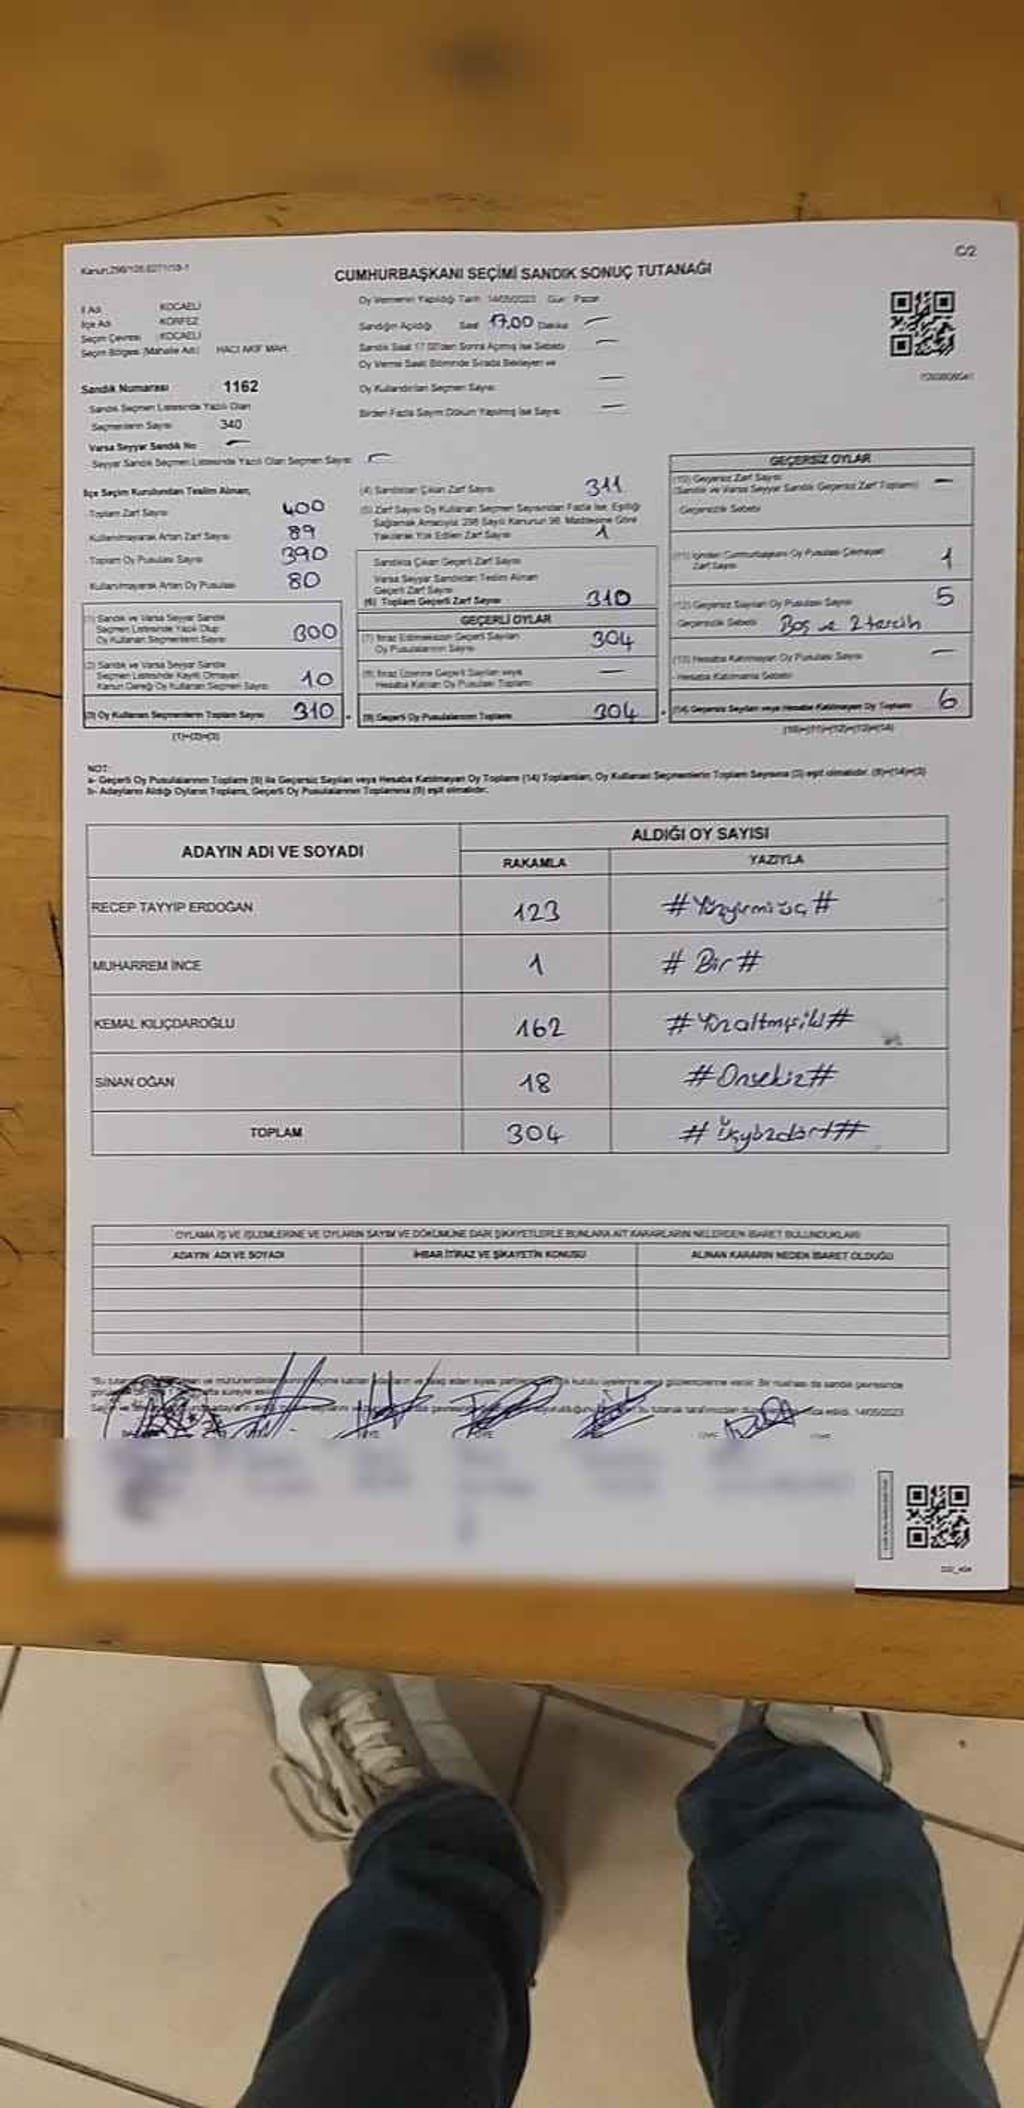 Kanun:298/105,6271/19-1
C/2
CUMHURBAŞKANI SEÇİMİ SANDIK SONUÇ TUTANAĞI
İl Adı : KOCAELİ
İlçe Adı : KÖRFEZ
Seçim Çevresi : KOCAELİ
Seçim Bölgesi (Mahalle Adı) : HACI AKİF MAH.
Sandık Numarası 1162
Sandık Seçmen Listesinde Yazılı Olan
Seçmenlerin Sayısı 340
Varsa Seyyar Sandık No —
Seyyar Sandık Seçmen Listesinde Yazılı Olan Seçmen Sayısı —
Oy Vermenin Yapıldığı Tarih 14/05/2023 Gün Pazar
Sandığın Açıldığı Saat 17.00 Dakika —
Sandık Saat 17.00'den Sonra Açılmış İse Sebebi —
Oy Verme Saati Bitiminde Sırada Bekleyen ve
Oy Kullandırılan Seçmen Sayısı —
Birden Fazla Sayım Döküm Yapılmış İse Sayısı —
İlçe Seçim Kurulundan Teslim Alınan;
Toplam Zarf Sayısı 400
Kullanılmayarak Artan Zarf Sayısı 89
Toplam Oy Pusulası Sayısı 390
Kullanılmayarak Artan Oy Pusulası 80
(1) Sandık ve Varsa Seyyar Sandık
Seçmen Listesinde Yazılı Olup
Oy Kullanan Seçmenlerin Sayısı 300
(2) Sandık ve Varsa Seyyar Sandık
Seçmen Listesinde Kayıtlı Olmayan
Kanun Gereği Oy Kullanan Seçmen Sayısı 10
(3) Oy Kullanan Seçmenlerin Toplam Sayısı 310
(1)+(2)=(3)
(4) Sandıktan Çıkan Zarf Sayısı 311
(5) Zarf Sayısı Oy Kullanan Seçmen Sayısından Fazla İse, Eşitliği
Sağlamak Amacıyla 298 Sayılı Kanunun 98. Maddesine Göre
Yakılarak Yok Edilen Zarf Sayısı 1
Sandıkta Çıkan Geçerli Zarf Sayısı
Varsa Seyyar Sandıktan Teslim Alınan
Geçerli Zarf Sayısı
(6) Toplam Geçerli Zarf Sayısı 310
GEÇERLİ OYLAR
(7) İtiraz Edilmeksizin Geçerli Sayılan
Oy Pusulalarının Sayısı 304
(8) İtiraz Üzerine Geçerli Sayılan veya
Hesaba Katılan Oy Pusulası Toplamı —
(9) Geçerli Oy Pusulalarının Toplamı 304
GEÇERSİZ OYLAR
(10) Geçersiz Zarf Sayısı —
(Sandık ve Varsa Seyyar Sandık Geçersiz Zarf Toplamı)
Geçersizlik Sebebi
(11) İçinden Cumhurbaşkanı Oy Pusulası Çıkmayan
Zarf Sayısı 1
(12) Geçersiz Sayılan Oy Pusulası Sayısı 5
Geçersizlik Sebebi Boş ve 2 tercih
(13) Hesaba Katılmayan Oy Pusulası Sayısı —
Hesaba Katılmama Sebebi
(14) Geçersiz Sayılan veya Hesaba Katılmayan Oy Toplamı 6
(10)+(11)+(12)+(13)=(14)
NOT:
a- Geçerli Oy Pusulalarının Toplamı (9) ile Geçersiz Sayılan veya Hesaba Katılmayan Oy Toplamı (14) Toplamları, Oy Kullanan Seçmenlerin Toplam Sayısına (3) eşit olmalıdır. (9)+(14)=(3)
b- Adayların Aldığı Oyların Toplamı, Geçerli Oy Pusulalarının Toplamına (9) eşit olmalıdır.
ADAYIN ADI VE SOYADI
ALDIĞI OY SAYISI
RAKAMLA YAZIYLA
RECEP TAYYİP ERDOĞAN 123 #Yüzyirmiüç#
MUHARREM İNCE 1 #Bir#
KEMAL KILIÇDAROĞLU 162 #Yüzaltmışiki#
SİNAN OĞAN 18 #Onsekiz#
TOPLAM 304 #Üçyüzdört#
OYLAMA İŞ VE İŞLEMLERİNE VE OYLARIN SAYIM VE DÖKÜMÜNE DAİR ŞİKAYETLERLE BUNLARA AİT KARARLARIN NELERDEN İBARET BULUNDUKLARI
ADAYIN ADI VE SOYADI İHBAR İTİRAZ VE ŞİKAYETİN KONUSU ALINAN KARARIN NEDEN İBARET OLDUĞU
14/05/2023